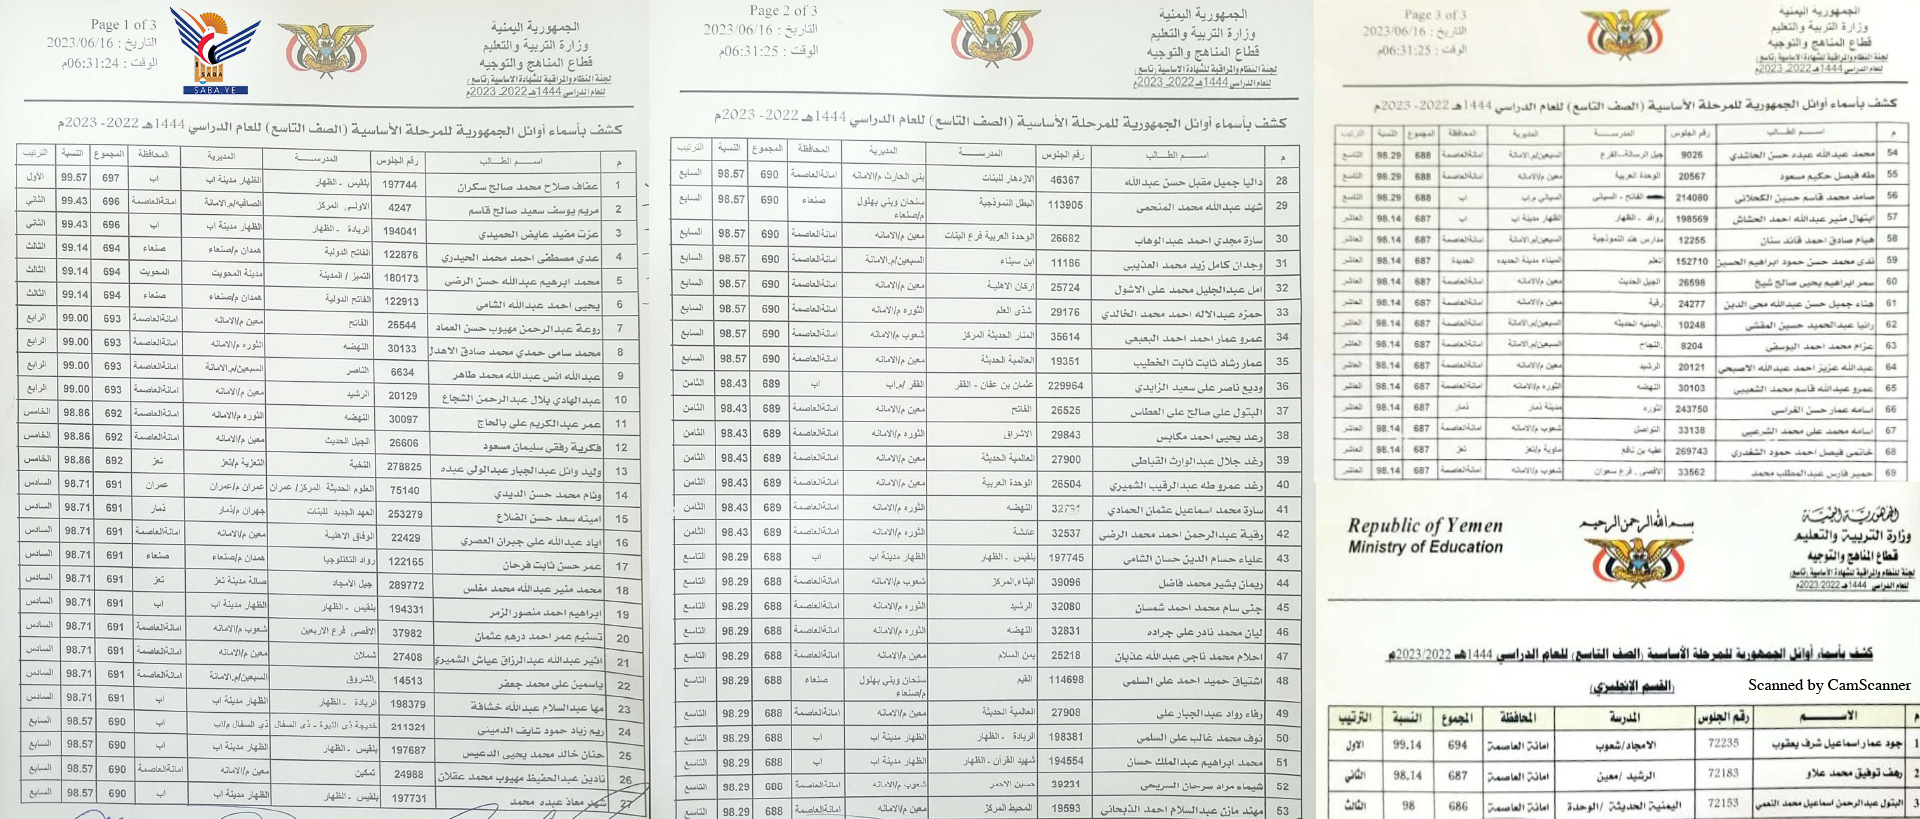 Page 1 of 3
التاريخ : 2023/06/16
الوقت : 06:31:24م
SABA
SABA.YE
الجمهورية اليمنية
وزارة التربية والتعليم
قطاع المناهج والتوجيه
لجنة النظام والمراقبة للشهادة الاساسية (تاسع)
للعام الدراسي 1444هـ 2022ـ 2023م
كشف بأسماء أوائل الجمهورية للمرحلة الأساسية (الصف التاسع) للعام الدراسي 1444هـ 2022- 2023م
م اسم الطالب رقم الجلوس المدرسة المديرية المحافظة المجموع النسبة الترتيب
1 عفاف صلاح محمد صالح سكران 197744 بلقيس - الظهار الظهار مدينة اب اب 697 99.57 الأول
2 مريم يوسف سعيد صالح قاسم 4247 الاولى المركز الصافيه/م.الامانة امانةالعاصمة 696 99.43 الثاني
3 عزت مفيد عايض الحميدي 194041 الريادة - الظهار الظهار مدينة اب اب 696 99.43 الثاني
4 عدي مصطفى احمد محمد الحيدري 122876 الفاتح الدولية همدان م/صنعاء صنعاء 694 99.14 الثالث
5 محمد ابرهيم عبدالله حسن الرضى 180173 التميز / المدينة مدينة المحويت المحويت 694 99.14 الثالث
6 يحيى احمد عبدالله الشامي 122913 الفاتح الدولية همدان م/صنعاء صنعاء 694 99.14 الثالث
7 روعة عبدالرحمن مهيوب حسن العماد 26544 الفاتح معين م/الامانه امانةالعاصمة 693 99.00 الرابع
8 محمد سامي حمدي محمد صادق الاهدل 30133 النهضه الثوره م/الامانه امانةالعاصمة 693 99.00 الرابع
9 عبدالله انس عبدالله محمد طاهر 6634 الناصر السبعين/م.الامانة امانةالعاصمة 693 99.00 الرابع
10 عبدالهادي بلال عبدالرحمن الشجاع 20129 الرشيد معين م/الامانه امانةالعاصمة 693 99.00 الرابع
11 عمر عبدالكريم علي بالحاج 30097 النهضه الثوره م/الامانه امانةالعاصمة 692 98.86 الخامس
12 فكرية رفقي سليمان مسعود 26606 الجيل الحديث معين م/الامانه امانةالعاصمة 692 98.86 الخامس
13 وليد وائل عبدالجبار عبدالولي عبده 278825 النخبة التعزية م/تعز تعز 692 98.86 الخامس
14 وئام محمد حسن الديدي 75140 العلوم الحديثة المركز/ عمران عمران م/عمران عمران 691 98.71 السادس
15 امينه سعد حسن الضلاع 253279 العهد الجديد للبنات جهران م/ذمار ذمار 691 98.71 السادس
16 اياد عبدالله علي جبران العصري 22429 الوفاق الاهلية معين م/الامانه امانةالعاصمة 691 98.71 السادس
17 عمر حسن ثابت فرحان 122165 رواد التكنلوجيا همدان م/صنعاء صنعاء 691 98.71 السادس
18 محمد منير عبدالله محمد مغلس 289772 جيل الامجاد صالة مدينة تعز تعز 691 98.71 السادس
19 ابراهيم احمد منصور الزمر 194331 بلقيس - الظهار الظهار مدينة اب اب 691 98.71 السادس
20 تسنيم عمر احمد درهم عثمان 37982 الاقصى فرع الاربعين شعوب م/الامانه امانةالعاصمة 691 98.71 السادس
21 اثير عبدالله عبدالرزاق عياش الشميري 27408 شملان معين م/الامانه امانةالعاصمة 691 98.71 السادس
22 ياسمين علي محمد جعفر 14513 الشروق السبعين/م.الامانة امانةالعاصمة 691 98.71 السادس
23 مها عبدالسلام عبدالله خشافة 198379 الريادة - الظهار الظهار مدينة اب اب 691 98.71 السادس
24 ريم زياد حمود شايف الدميني 211321 خديجة ذي الثبوة - ذي السفال ذي السفال م/اب اب 690 98.57 السابع
25 حنان خالد محمد يحيى الدعيس 197687 بلقيس - الظهار الظهار مدينة اب اب 690 98.57 السابع
26 نادين عبدالحفيظ مهيوب محمد عقلان 24988 تمكين معين م/الامانه امانةالعاصمة 690 98.57 السابع
27 شهد معاذ عبده محمد 197731 بلقيس - الظهار الظهار مدينة اب اب 690 98.57 السابع
Page 2 of 3
التاريخ : 2023/06/16
الوقت : 06:31:25م
الجمهورية اليمنية
وزارة التربية والتعليم
قطاع المناهج والتوجيه
لجنة النظام والمراقبة للشهادة الاساسية (تاسع)
للعام الدراسي 1444هـ 2022ـ 2023م
كشف بأسماء أوائل الجمهورية للمرحلة الأساسية (الصف التاسع) للعام الدراسي 1444هـ 2022- 2023م
م اسم الطالب رقم الجلوس المدرسة المديرية المحافظة المجموع النسبة الترتيب
28 داليا جميل مقبل حسن عبدالله 46367 الازدهار للبنات بني الحارث م/الامانه امانةالعاصمة 690 98.57 السابع
29 شهد عبدالله محمد المنحمي 113905 البطل النموذجية سنحان وبني بهلول م/صنعاء صنعاء 690 98.57 السابع
30 سارة مجدي احمد عبدالوهاب 26682 الوحدة العربية فرع البنات معين م/الامانه امانةالعاصمة 690 98.57 السابع
31 وجدان كامل زيد محمد العذيبي 11186 ابن سيناء السبعين/م.الامانة امانةالعاصمة 690 98.57 السابع
32 امل عبدالجليل محمد علي الاشول 25724 اركان الاهلية معين م/الامانه امانةالعاصمة 690 98.57 السابع
33 حمزه عبدالاله احمد محمد الخالدي 29176 شذى العلم الثوره م/الامانه امانةالعاصمة 690 98.57 السابع
34 عمرو عمار احمد احمد البعيعي 35614 المنار الحديثة المركز شعوب م/الامانه امانةالعاصمة 690 98.57 السابع
35 عمار رشاد ثابت ثابت الخطيب 19351 العالمية الحديثة معين م/الامانه امانةالعاصمة 690 98.57 السابع
36 وديع ناصر علي سعيد الزايدي 229964 عثمان بن عفان - القفر القفر /م.اب اب 689 98.43 الثامن
37 البتول علي صالح علي العطاس 26525 الفاتح معين م/الامانه امانةالعاصمة 689 98.43 الثامن
38 رعد يحيى احمد مكابس 29843 الاشراق الثوره م/الامانه امانةالعاصمة 689 98.43 الثامن
39 رغد جلال عبدالوارث القباطي 27900 العالمية الحديثة معين م/الامانه امانةالعاصمة 689 98.43 الثامن
40 رغد عمرو طه عبدالرقيب الشميري 26504 الوحدة العربية معين م/الامانه امانةالعاصمة 689 98.43 الثامن
41 سارة محمد اسماعيل عثمان الحمادي النهضه الثوره م/الامانه امانةالعاصمة 689 98.43 الثامن
42 رقية عبدالرحمن احمد محمد الرضي 32537 عائشة الثوره م/الامانه امانةالعاصمة 689 98.43 الثامن
43 علياء حسام الدين حسان الشامي 197745 بلقيس - الظهار الظهار مدينة اب اب 688 98.29 التاسع
44 ريمان بشير محمد فاضل 39096 البناء.المركز شعوب م/الامانه امانةالعاصمة 688 98.29 التاسع
45 جنى سام محمد احمد شمسان 32080 الرشيد الثوره م/الامانه امانةالعاصمة 688 98.29 التاسع
46 ليان محمد نادر علي جراده 32831 النهضه الثوره م/الامانه امانةالعاصمة 688 98.29 التاسع
47 احلام محمد ناجي عبدالله عذبان 25218 يمن السلام معين م/الامانه امانةالعاصمة 688 98.29 التاسع
48 اشتياق حميد احمد علي السلمي 114698 القيم سنحان وبني بهلول م/صنعاء صنعاء 688 98.29 التاسع
49 رفاء رواد عبدالجبار علي 27908 العالمية الحديثة معين م/الامانه امانةالعاصمة 688 98.29 التاسع
50 نوف محمد غالب علي السلمي 198381 الريادة - الظهار الظهار مدينة اب اب 688 98.29 التاسع
51 محمد ابراهيم عبدالملك حسان 194554 شهيد القران - الظهار الظهار مدينة اب اب 688 98.29 التاسع
52 شيماء مراد سرحان السريحي 39231 حسين الاحمر شعوب م/الامانه امانةالعاصمة 688 98.29 التاسع
53 مهند مازن عبدالسلام احمد الذبحاني 19593 المحيط المركز معين م/الامانه امانةالعاصمة 688 98.29 التاسع
Page 3 of 3
التاريخ : 2023/06/16
الوقت : 06:31:25م
الجمهورية اليمنية
وزارة التربية والتعليم
قطاع المناهج والتوجيه
لجنة النظام والمراقبة للشهادة الاساسية (تاسع)
للعام الدراسي 1444هـ 2022ـ 2023م
كشف بأسماء أوائل الجمهورية للمرحلة الأساسية (الصف التاسع) للعام الدراسي 1444هـ 2022- 2023م
م اسم الطالب رقم الجلوس المدرسة المديرية المحافظة المجموع النسبة الترتيب
54 محمد عبدالله عبده حسن الحاشدي 9026 جيل الرسالة-الفرع السبعين/م.الامانة امانةالعاصمة 688 98.29 التاسع
55 طه فيصل حكيم مسعود 20567 الوحدة العربية معين م/الامانه امانةالعاصمة 688 98.29 التاسع
56 صامد محمد قاسم حسين الكحلاني 214080 الفاتح - السياني السياني م.اب اب 688 98.29 التاسع
57 ابتهال منير عبدالله احمد الحشاش 198569 روافد - الظهار الظهار مدينة اب اب 687 98.14 العاشر
58 هيام صادق احمد قائد سنان 12255 مدارس هند النموذجية السبعين/م.الامانة امانةالعاصمة 687 98.14 العاشر
59 ندى محمد حسن حمود ابراهيم الحسين 152710 العلم الميناء مدينة الحديده الحديدة 687 98.14 العاشر
60 سمر ابراهيم يحيى صالح شيخ 26598 الجيل الحديث معين م/الامانه امانةالعاصمة 687 98.14 العاشر
61 هناء جميل حسن عبدالله محي الدين 24277 رقية معين م/الامانه امانةالعاصمة 687 98.14 العاشر
62 رانيا عبدالحميد حسين المقشي 10248 اليمنيه الحديثه السبعين/م.الامانة امانةالعاصمة 687 98.14 العاشر
63 عزام محمد احمد اليوسفي 8204 النجاح السبعين/م.الامانة امانةالعاصمة 687 98.14 العاشر
64 عبدالله عزيز احمد عبدالله الاصبحي 20121 الرشيد معين م/الامانه امانةالعاصمة 687 98.14 العاشر
65 عمرو عبدالله قاسم محمد الشعيبي 30103 النهضه الثوره م/الامانه امانةالعاصمة 687 98.14 العاشر
66 اسامه عمار حسن الغراسي 243750 الثوره مدينة ذمار ذمار 687 98.14 العاشر
67 اسامه محمد علي محمد الشرعبي 33138 التواصل شعوب م/الامانه امانةالعاصمة 687 98.14 العاشر
68 فيصل احمد حمود 269743 عقبه بن نافع ماوية م/تعز تعز 687 98.14 العاشر
69 حمير فارس عبدالمطلب محمد 33562 الاقصى . فرع سعوان شعوب م/الامانه امانةالعاصمة 687 98.14 العاشر
Republic of Yemen
Ministry of Education
بسم الله الرحمن الرحيم
الجمهورية اليمنية
وزارة التربية والتعليم
قطاع المناهج والتوجيه
لجنة النظام والمراقبة للشهادة الأساسية (تاسع)
للعام الدراسي 1444هـ 2023/2022م
كشف بأسماء أوائل الجمهورية للمرحلة الأساسية (الصف التاسع) للعام الدراسي 1444هـ 2023/2022م
(القسم الإنجليزي)
Scanned by CamScanner
م الاسم رقم الجلوس المدرسة المحافظة المجموع النسبة الترتيب
1 جود عمار اسماعيل شرف يعقوب 72235 الامجاد/شعوب امانة العاصمة 694 99.14 الاول
2 رهف توفيق محمد علاو 72183 الرشيد /معين امانة العاصمة 687 98.14 الثاني
3 البتول عبدالرحمن اسماعيل محمد النعمي 72153 اليمنية الحديثة /الوحدة امانة العاصمة 686 98 الثالث